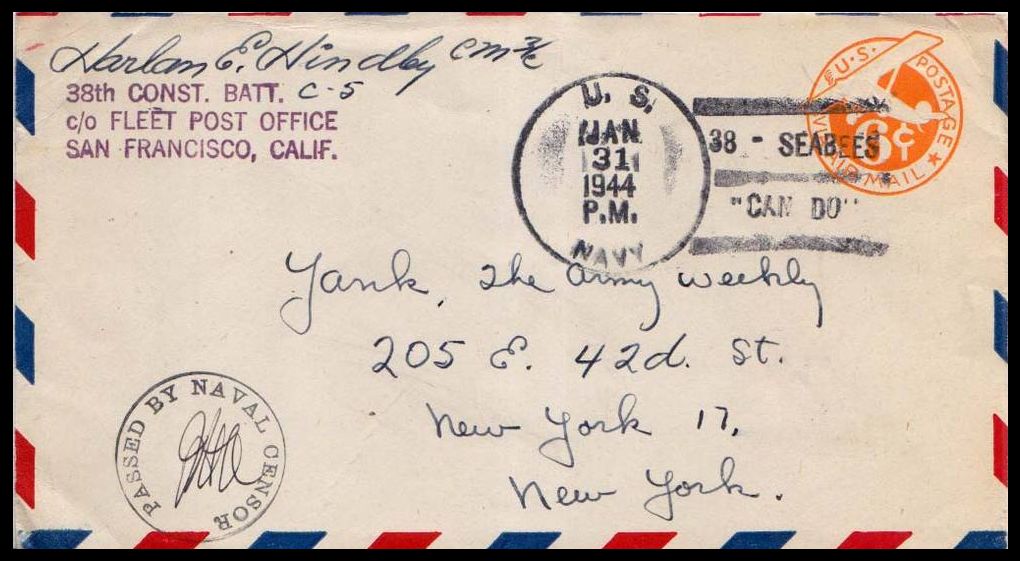 Harlan E. Hindby CM 2/c
38th CONST. BATT. C-5
c/o FLEET POST OFFICE
SAN FRANCISCO, CALIF.
U. S.
JAN
31
1944
P.M.
NAVY
38 - SEABEES
"CAN DO"
U.S. POSTAGE
6¢
VIA AIR MAIL
Yank, The Army Weekly
205 E. 42d. St.
New York 17,
New York.
PASSED BY NAVAL CENSOR